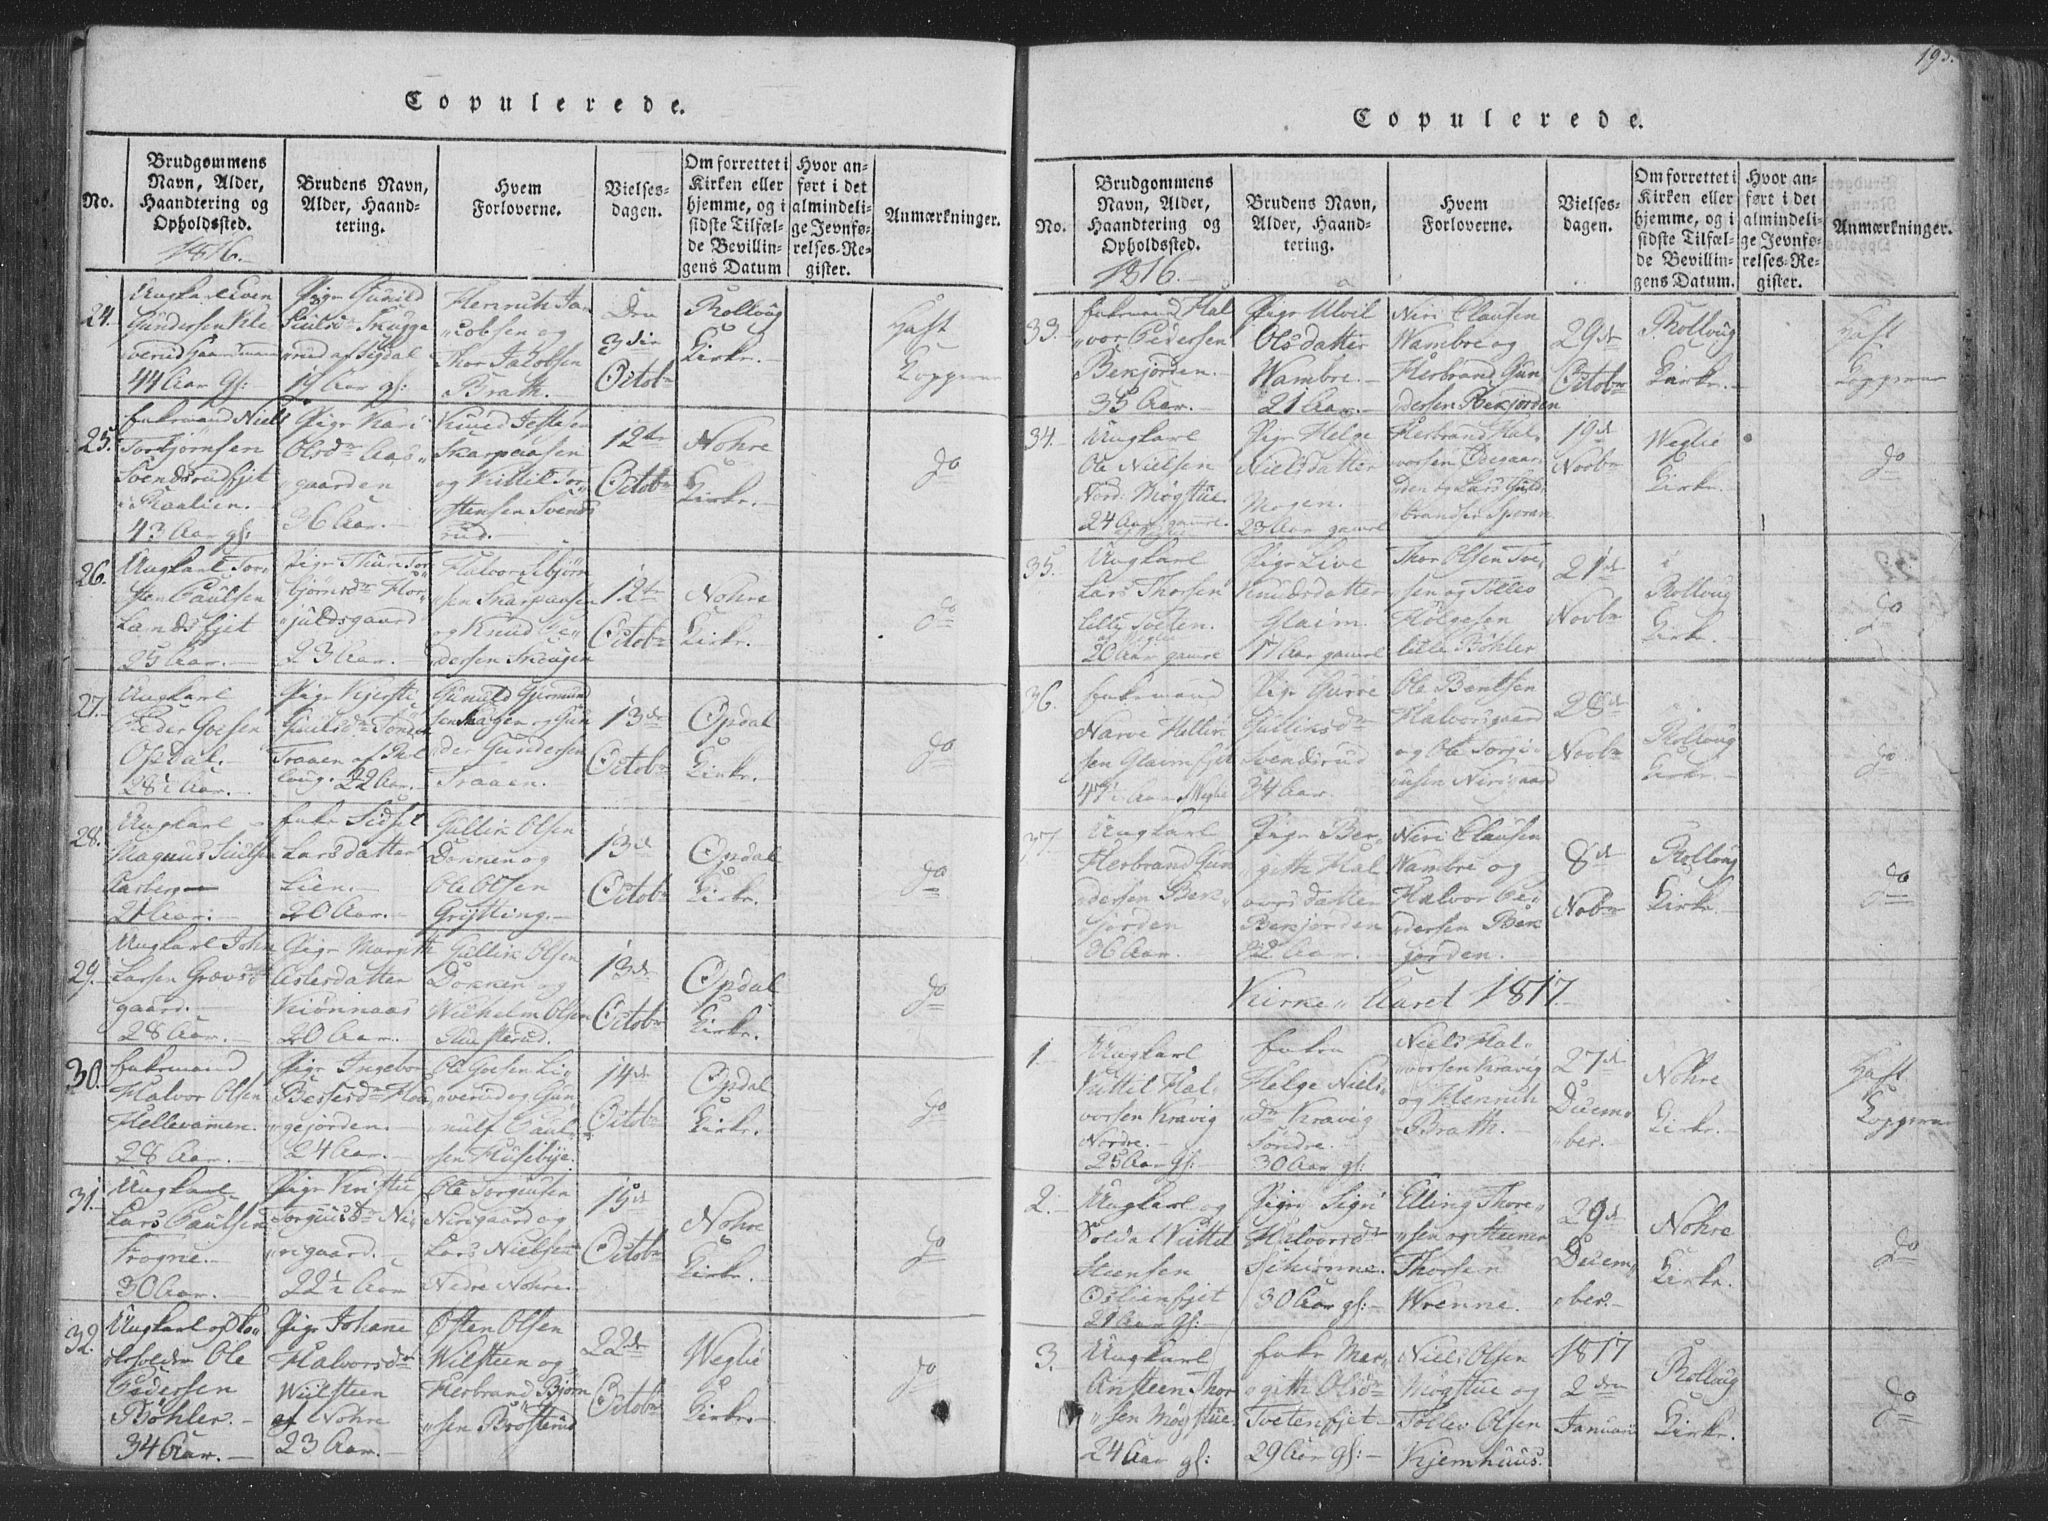 193.
Copulerede.
No.
Brudgommens Navn, Alder, Haandtering og Opholdssted.
Brudens Navn, Alder, Haandtering.
Hvem Forloverne.
Vielsesdagen.
Om forrettet i Kirken eller hjemme, og i sidste Tilfælde Bevillingens Datum
Hvor anført i det almindelige Jevnførelses-Register.
Anmærkninger.
1816.
24.
Ungkarl Even
Gundersen
verud Gaardmand
44 Aar gl:
Pige Gunild
Skugge
rud af Sigdal
Aar gl:
Henrich Ja
cobsen og
Thor Jacobsen
Brath.
Den
3die
Octobr
Rolloug
Kirke.
Haft
Kopperne
25.
Enkemand Niels
Torbjørnsen
Svendsrudejet
43 Aar gl:
Pige Kari
Olsdr Aas
gaarden
36 Aar.
Knud
Skarpaasen
og Kittil Tor
stensen Svends
rud.
12te
Octobr
Nohre
Kirke.
do
26.
Ungkarl Tor
sten Paulsen
Landsejet
25 Aar.
Pige Thuri Tor
bjørnsdr
juldsgaard
23 Aar.
Halvor
sen Skarpaasen
og Knud Pe
dersen
12te
Octobr
Nohre
Kirke.
do
27.
Ungkarl
Peder Goesen
Opdal.
28½ Aar.
Pige Kjersti
Traaen af Rol
loug. 22 Aar.
Gunuld Gurmund
sen og Gun
der Gundersen
Traaen.
13de
Octobr
Opdal
Kirke.
do
28.
Ungkarl
Magnus
Aasberg
21 Aar.
Enke Sidsel
Larsdatter
Lien.
20 Aar.
Gullik Olsen
Donnen og
Ole Olsen
Grytting.
13de
Octobr
Opdal
Kirke.
do
29.
Ungkarl John
Larsen Grøvs
gaard.
28 Aar.
Pige Margith
Aslesdatter
Kiønnaas
20 Aar.
Gullik Olsen
Donnen og
Wilhelm Olsen
13de
Octobr
Opdal
Kirke.
do
30.
Enkemand
Halvor Olsen
Hellevamen.
28 Aar.
Pige Ingebor
Bessesdr
gejorden.
24 Aar.
Ole Goesen Li
verud og Gun
nulf Paul
sen Husebije.
14de
Octobr
Opdal
Kirke.
do
31.
Ungkarl
Lars Paulsen
Frogne.
30 Aar.
Pige Kristie
Torguusdr Ni
rigaard.
22½ Aar
Ole Torguusen
Nirigaard og
Lars Nielsen
Nedre Nohre.
15de
Octobr
Nohre
Kirke.
do
32.
Ungkarl og
Ole
Pedersen
Bøhler.
34 Aar.
Pige Johane
Halvorsdr
Wiilsteen
af Nohre
23 Aar.
Østen Olsen
Wilsteen og
Herbrand Bjørn
sen Brøsterud
22de
Octobr
Weglie
Kirke.
do
Copulerede.
No.
Brudgommens Navn, Alder, Haandtering og Opholdssted.
Brudens Navn, Alder, Haandtering.
Hvem Forloverne.
Vielsesdagen.
Om forrettet i Kirken eller hjemme, og i sidste Tilfælde Bevillingens Datum.
Hvor anført i det almindelige Jevnførelses-Register.
Anmærkninger.
1816.
33.
Enkemand Hal
vor Pedersen
Bekjorden.
35 Aar.
Pige Ulvil
Olsdatter
Wambre.
21 Aar.
Niri Clausen
Wambre og
Herbrand Gun
dersen Bekjorden
29de
Octobr
Rolloug
Kirke.
Haft
Kopperne
34.
Ungkarl
Ole Nielsen
Nord: Møgstue
24 Aar gamle.
Pige Helge
Nielsdatter
Mogen.
23 Aar gamle
Herbrand Hal
vorsen Ødegaar
den og Lars Guld
brandsen
19de
Novbr
Weglie
Kirke.
do
35.
Ungkarl
Lars Thorsen
Lille Tveten.
af Weglie
20 Aar gamle
Pige Live
Knudsdatter
Glaim
17 Aar gamle
Thor Olsen Tve
ten og Tollev
Helgesen
lille Bøhler
21de
Novbr
Rolloug
Kirke.
do
36.
Enkemand
Narve Hellik
sen Glaimsejet
47½ Aar Weglie
Pige Gurre
Gulliksdr
Svendsrud
34 Aar.
Ole Bentsen
Halvorsgaard
og Ole Torgi
usen Nirigaard
28de
Novbr
Rolloug
Kirke.
do
37.
Ungkarl
Herbrand Gun
dersen Bek
jorden
36 Aar.
Pige Ber
gith Hal
vorsdatter
Bekjorden
22 Aar.
Niri Clausen
Wambre og
Halvor Pe
dersen Bek
jorden.
8de
Novbr
Rolloug
Kirke.
do
Kirke Aaret 1817.
1.
Ungkarl
Kittil Hal
vorsen Kravig
Nordre.
25 Aar gl:
Enke
Helge Niels
dr Kravig
Søndre.
30 Aar gl:
Niels Hal
vorsen Kravig
og Henrich
Brath.
27de
Decem
ber.
Nohre
Kirke.
Haft
Kopperne
2.
Ungkarl og
Soldat Kittel
Steensen
Oslienejet
21 Aar gl:
Pige Sigri
Halvorsdr
Schiønne.
30 Aar gl:
Elling Thore
sen og Steener
Thorsen
Wrenne.
29de
Decem
ber.
Nohre
Kirke.
do
3.
Ungkarl
Ansteen Thor
sen Møgstue.
24 Aar gl:
Enke Mar
gith Olsdr
Tvetenejet
29 Aar gl:
Niels Olsen
Møgstue og
Tollev Olsen
Kjemhuus.
1817
2den
Januari
Rolloug
Kirke.
do